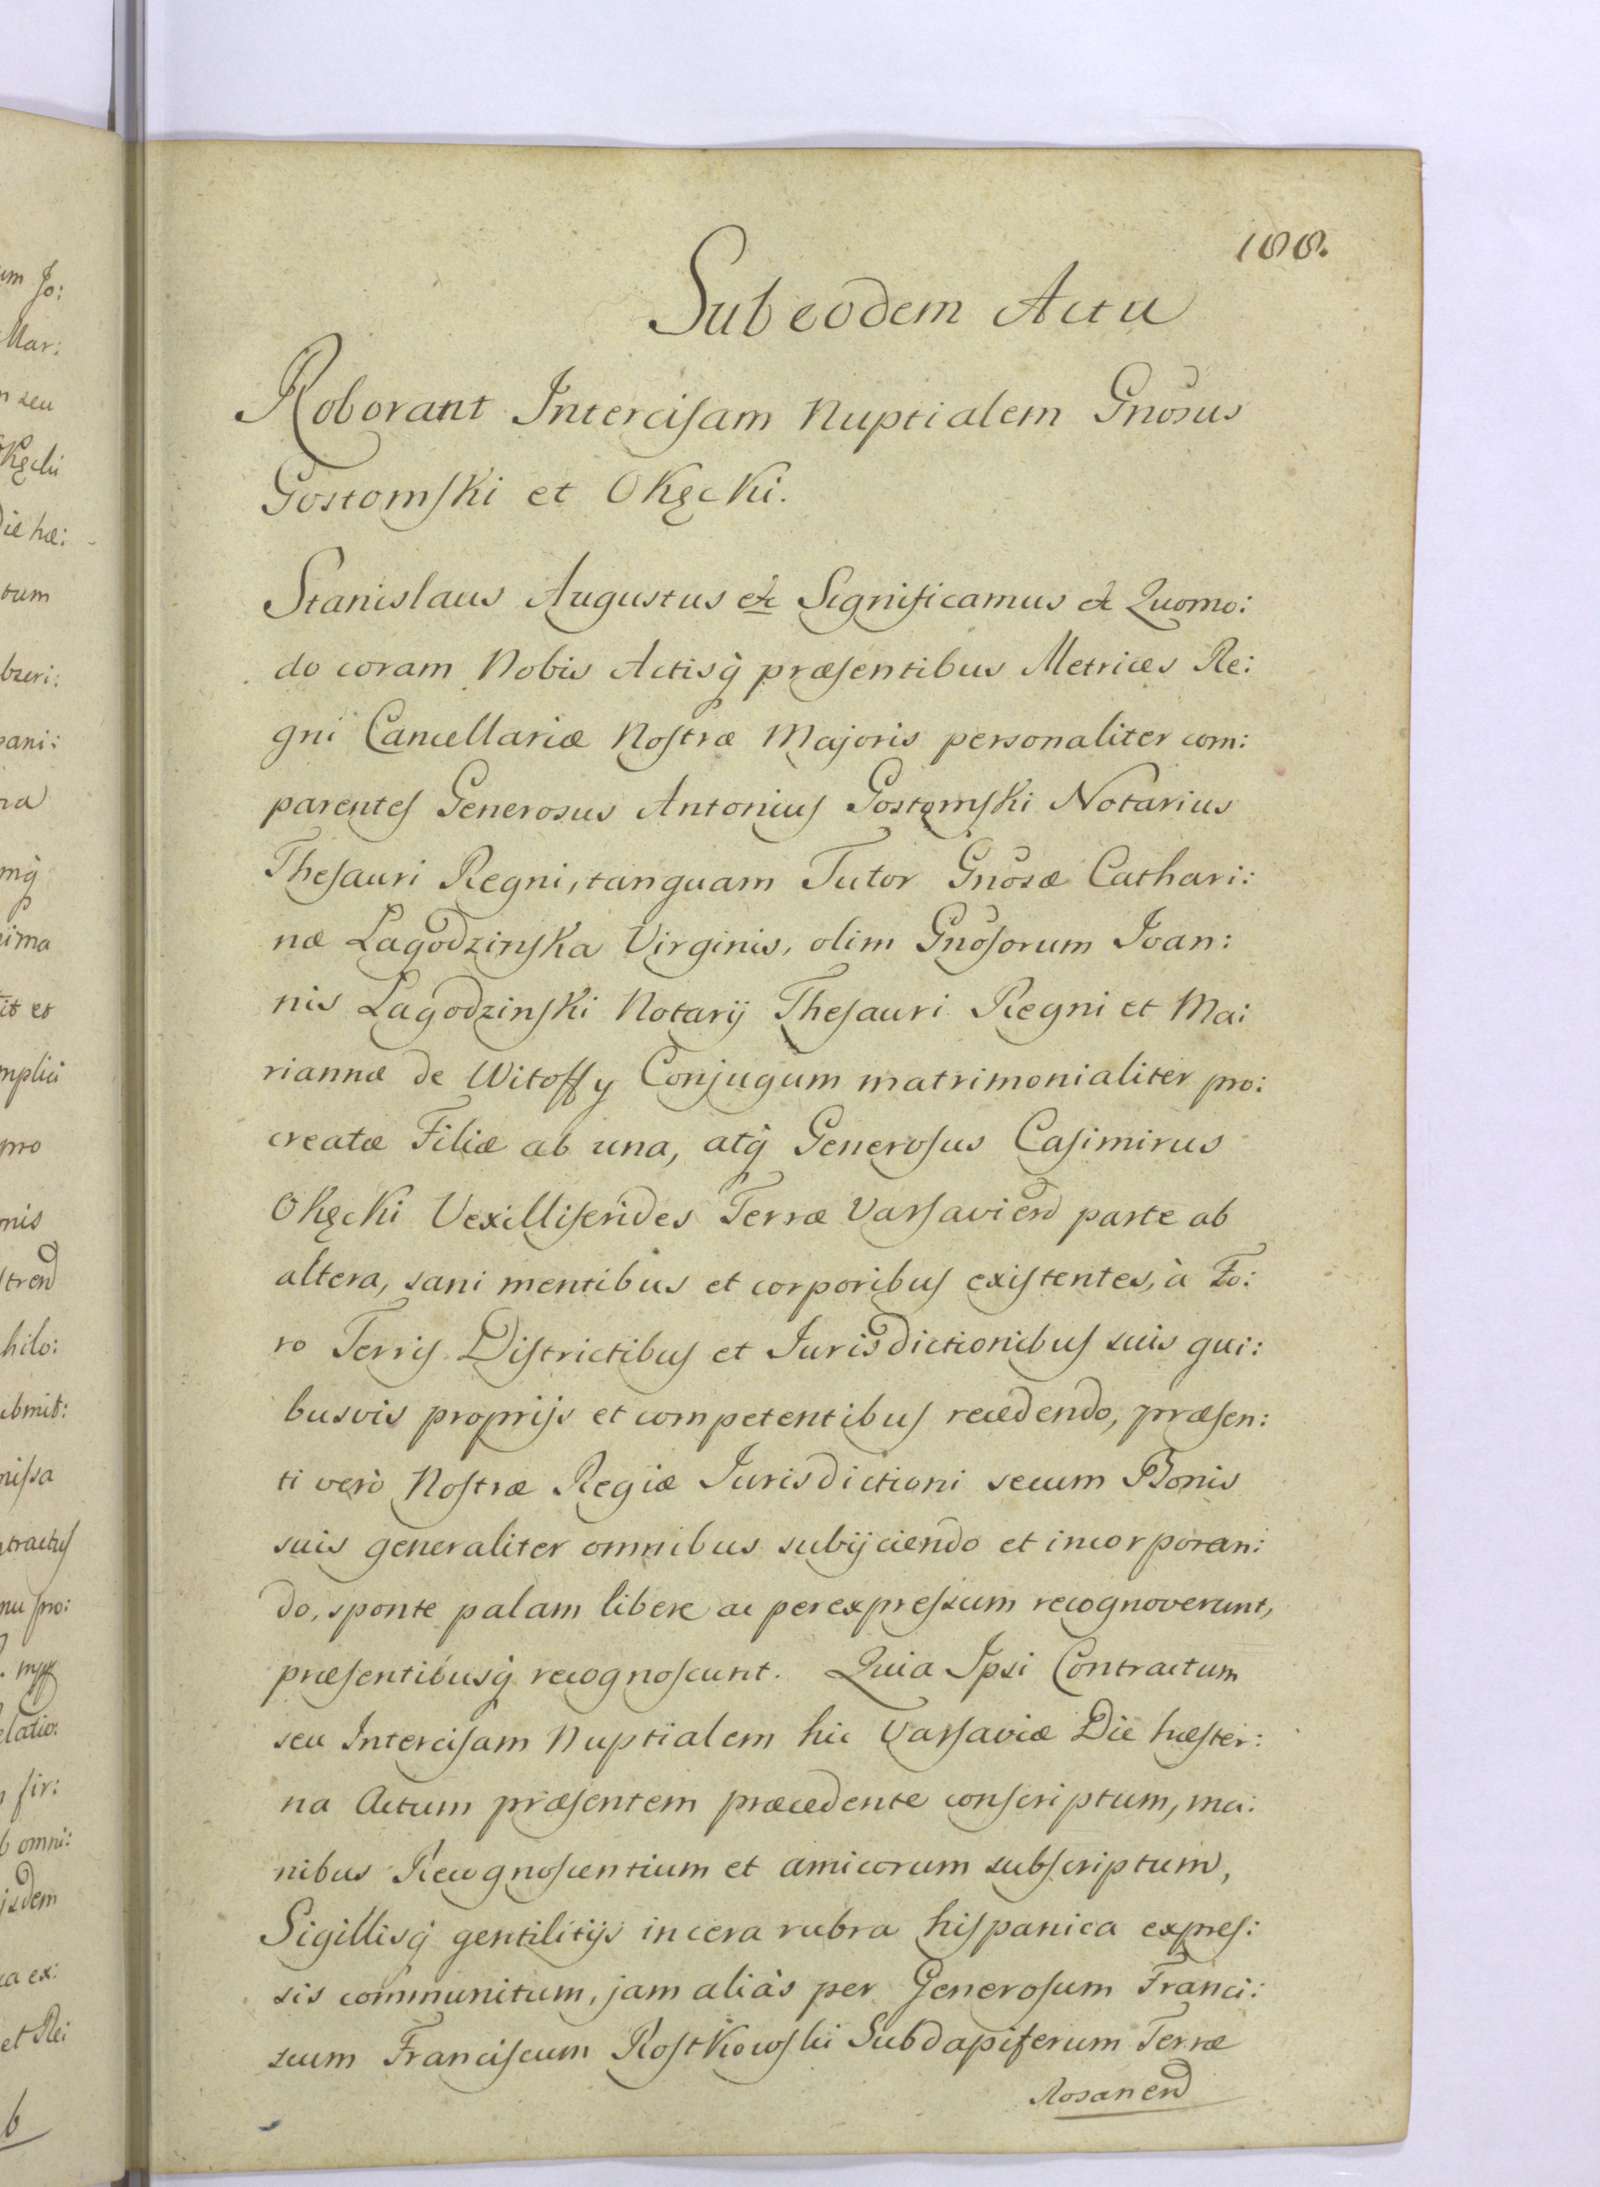 188.
Sub eodem Actu
Roborant Intercisam Nuptialem Gnosus
Gostomski et Okęcki.
Stanislaus Augustus etc Significamus etc Quomo:
do coram Nobis Actisq̀ præsentibus Metrices Re:
gni Cancellariæ Nostræ Majoris personaliter com:
parentes Generosus Antonius Gostomski Notarius
Thesauri Regni, tanquam Tutor Gnosæ Cathari:
næ Lagodzinska Virginis, olim Gnosorum Ioan:
nis Lagodzinski Notarij Thesauri Regni et Ma:
riannæ de Witoffy Conjugum matrimonialiter pro:
creatæ Filiæ ab una, atq̀ Generosus Casimirus
Okęcki Vexilliferides Terræ Varsavien parte ab
altera, sani mentibus et corporibus existentes, à Fo:
ro Terris Districtibus et Iurisdictionibus suis qui:
busvis proprijs et competentibus recedendo, præsen:
ti verò Nostræ Regiæ Iurisdictioni secum Bonis
suis generaliter omnibus subijciendo et incorporan:
do, sponte palam libere ac per expressum recognoverunt,
præsentibusq̀ recognoscunt. Quia Ipsi Contractum
seu Intercisam Nuptialem hic Varsaviæ Die hæster:
na Actum præsentem præcedente conscriptum, ma:
nibus Recognoscentium et amicorum subscriptum,
Sigillisq̀ gentilitijs in cera rubra hispanica expres:
sis communitum, jam aliàs per Generosum Franci:
scum Franciscum Rostkowski Subdapiferum Terræ
Rosanen